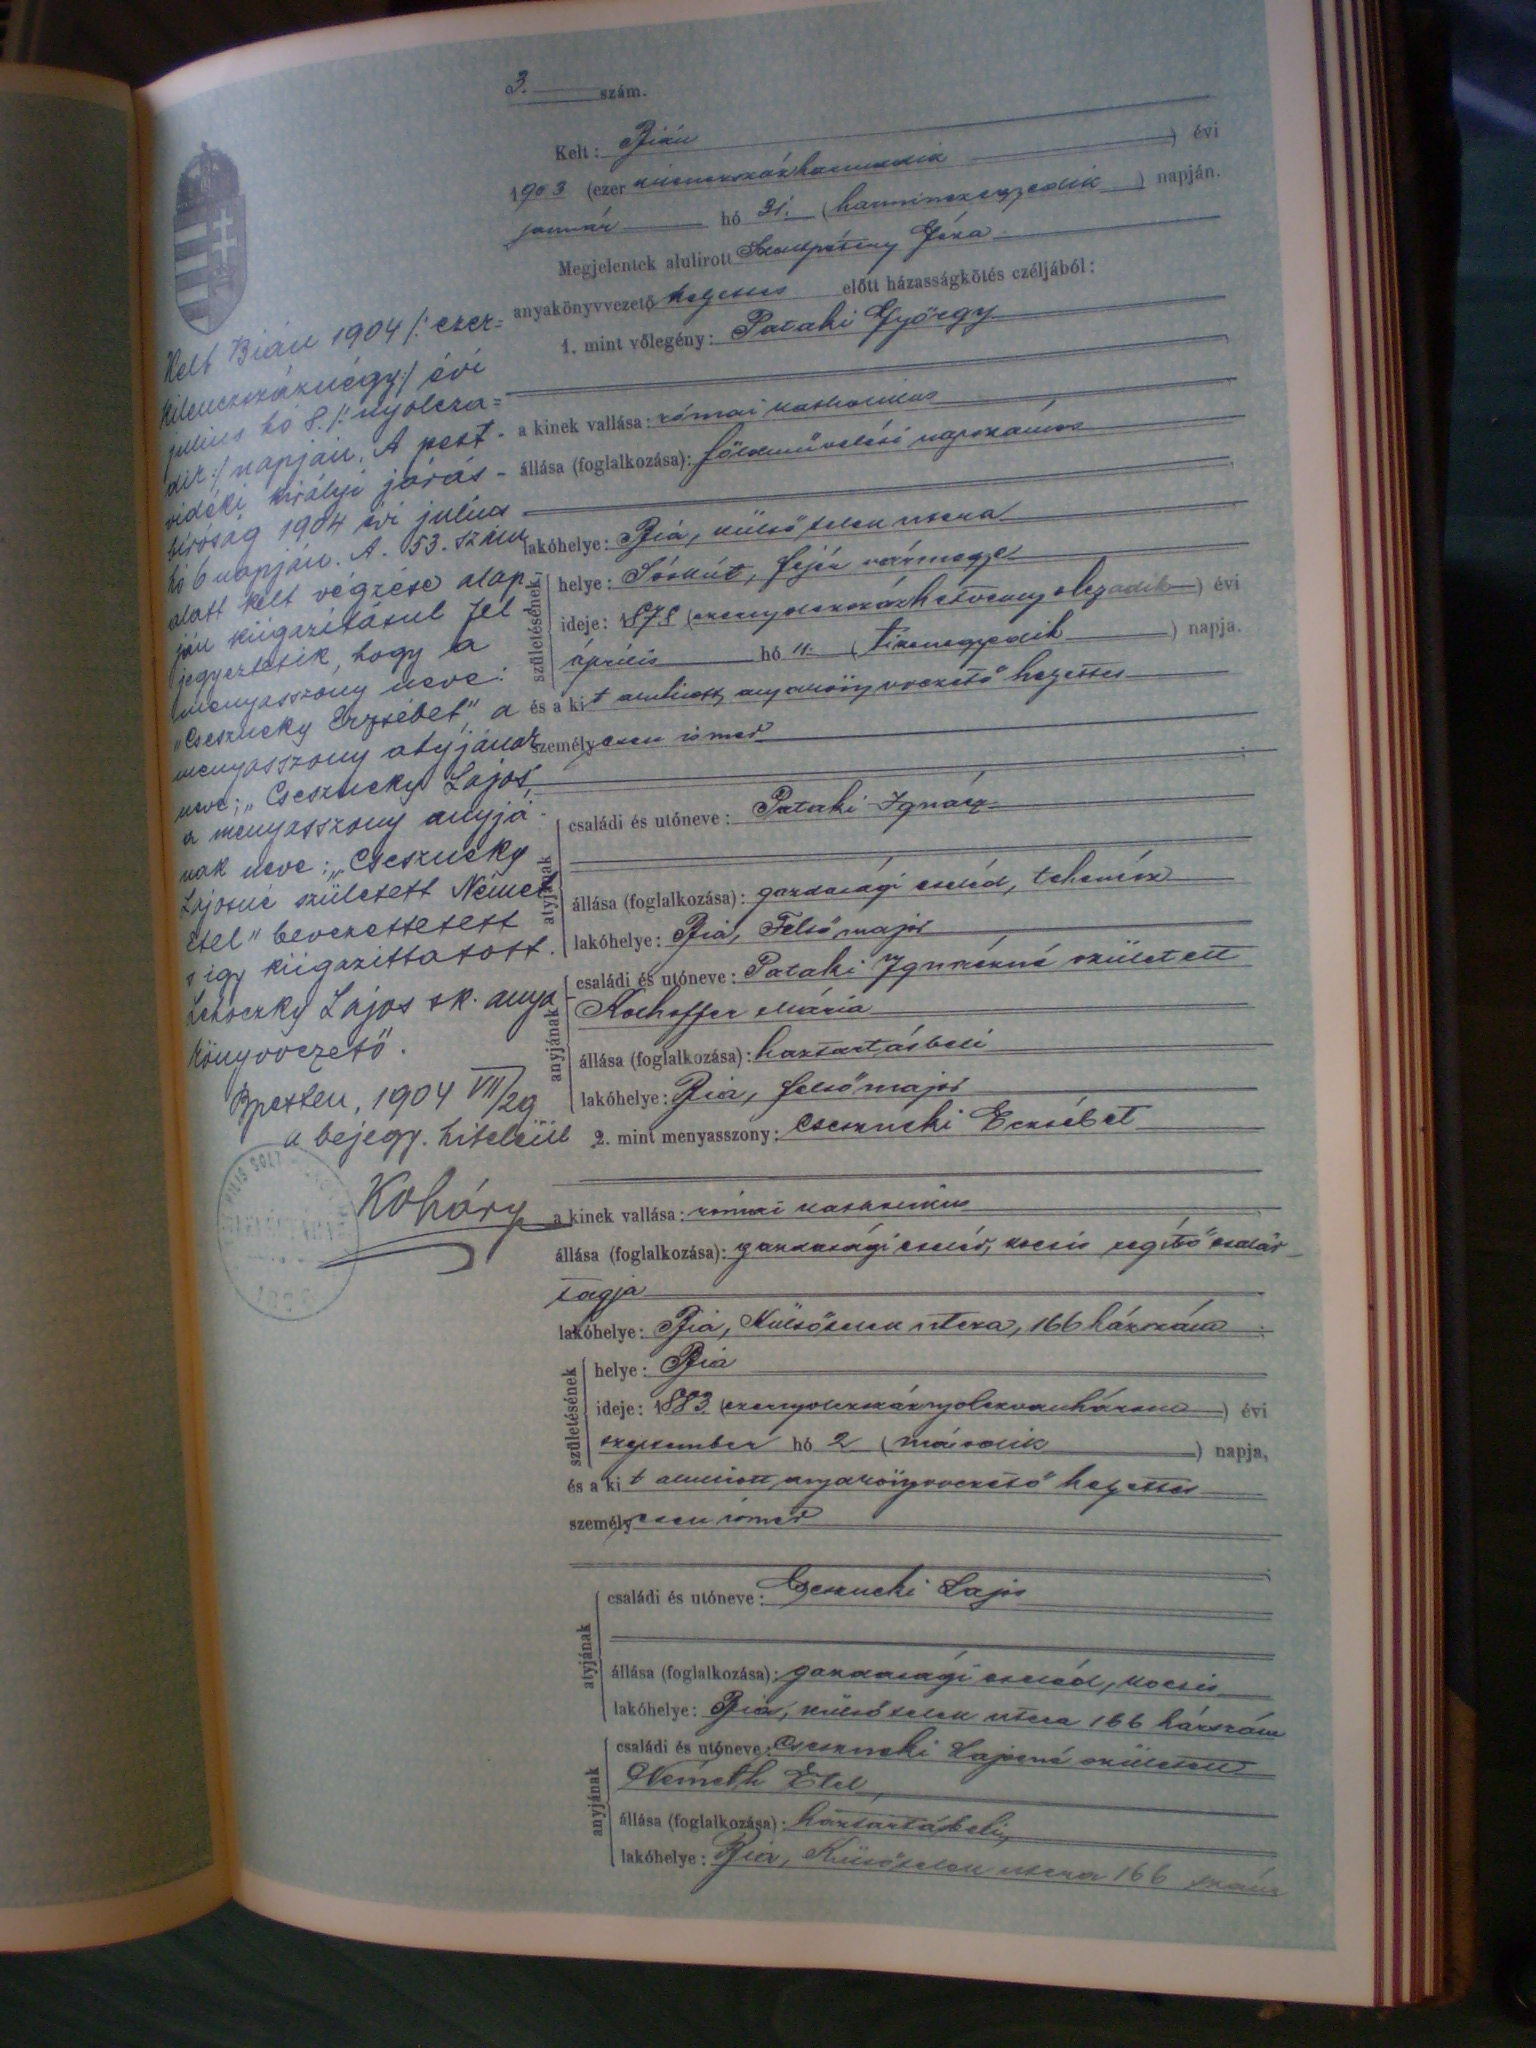 3. szám.
Kelt: Bián
1903 (ezer kilenczszázharmadik) évi
január hó 31. (harminczegyedik) napján.
Megjelentek alulírott Szentpétery Géza
anyakönyvvezető helyettes előtt házasságkötés czéljából:
1. mint vőlegény: Pataki György
a kinek vallása: római katholikus
állása (foglalkozása): földművelési napszámos
lakóhelye: Bia, külső telek utcza
születésének
helye: Sóskút, Fejér vármegye
ideje: 1878 (ezernyolczszázhetvennyolczadik) évi
április hó 11. (tizenegyedik) napja.
és a kit alulirott anyakönyvvezető helyettes
személyesen ismer
atyjának
családi és utóneve: Pataki Ignácz
állása (foglalkozása): gazdasági cseléd, tehenész
lakóhelye: Bia, Felső major
anyjának
családi és utóneve: Pataki Ignáczné született
Kochoffer Mária
állása (foglalkozása): háztartásbeli
lakóhelye: Bia, felső major
2. mint menyasszony: Cseszneki Erzsébet
a kinek vallása: római katholikus
állása (foglalkozása): gazdasági cseléd, kocsis segítő család
tagja
lakóhelye: Bia, Külsőtelek utcza, 166 házszám
születésének
helye: Bia
ideje: 1883 (ezernyolczszáznyolczvanhárom) évi
szeptember hó 2 (második) napja,
és a kit alulirott anyakönyvvezető helyettes
személyesen ismer
atyjának
családi és utóneve: Cseszneki Lajos
állása (foglalkozása): gazdasági cseléd, kocsis
lakóhelye: Bia, külső telek utcza 166 házszám
anyjának
családi és utóneve: Cseszneki Lajosné született
Németh Etel,
állása (foglalkozása): háztartásbeli,
lakóhelye: Bia, Külsőtelek utcza 166 szám
Kelt Bián 1904 /: ezer=
kilenczszáznégy :/ évi
julius hó 8. /: nyolcza=
dik :/ napján. A pest-
vidéki királyi járás-
biróság 1904 évi julius
hó 6 napján. A. 53. szám
alatt kelt végzése alap-
ján kiigazításul fel-
jegyeztetik, hogy a
menyasszony neve:
"Cseszneky Erzsébet", a
menyasszony atyjának
neve: "Cseszneky Lajos,
a menyasszony anyjá-
nak neve: "Cseszneky
Lajosné született Német
Etel" bevezettetett
s igy kiigazittatott.
Lehoczky Lajos sk. anya
könyvvezető.
Bpesten, 1904 VII/29
a bejegy. hiteléül
Koháry